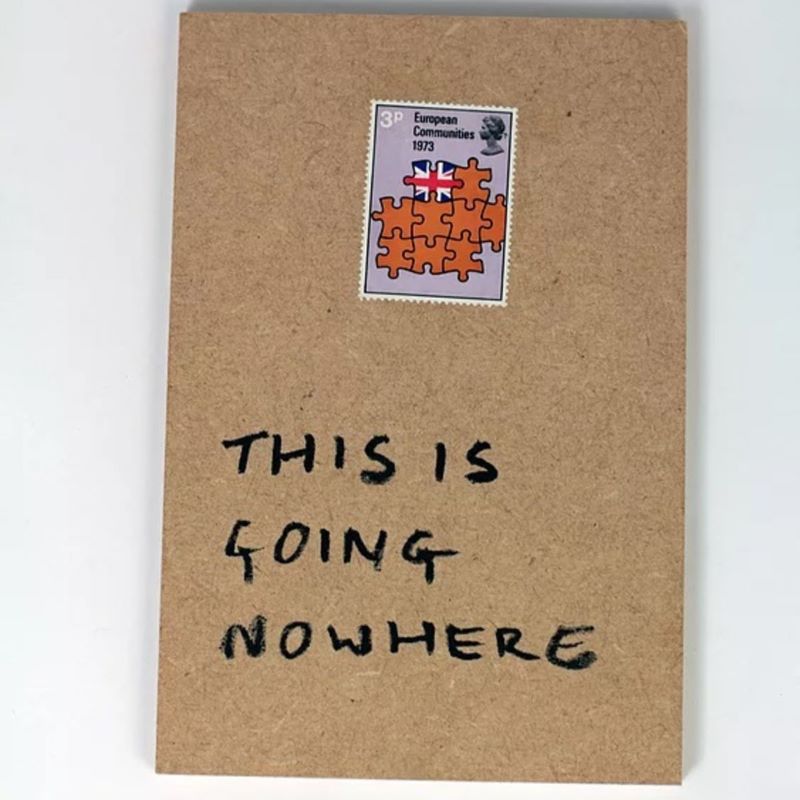 3P
European
Communities
1973
THIS IS
GOING
NOWHERE